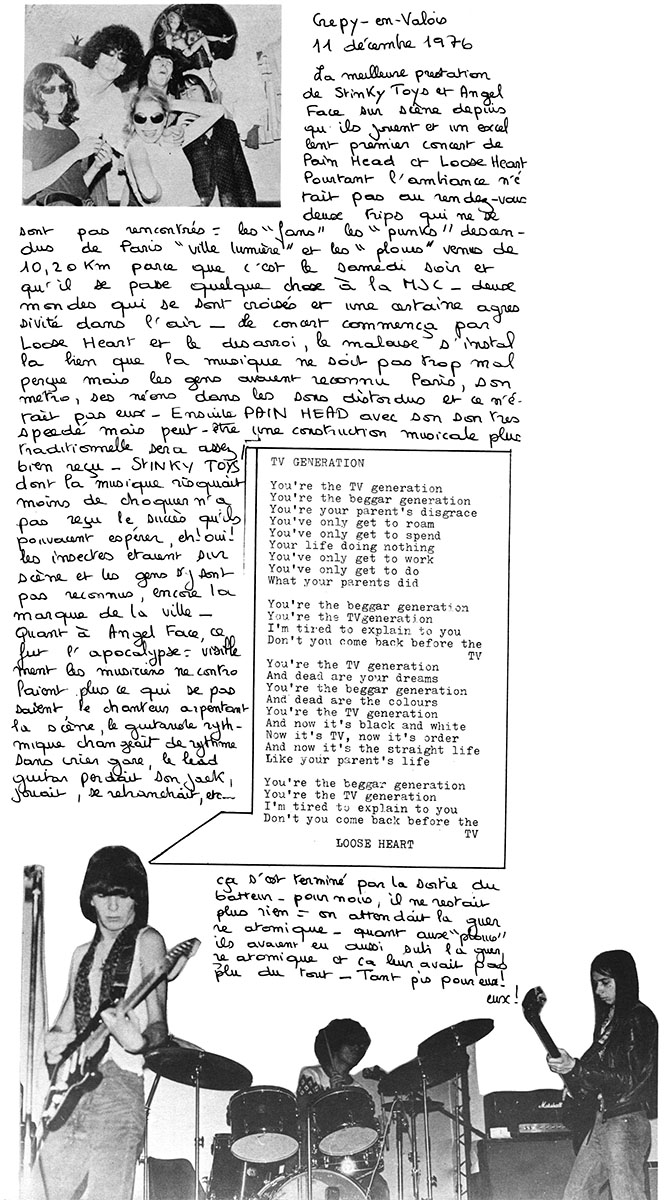 Crepy-en-Valois
11 décembre 1976
La meilleure prestation
de Stinky Toys et Angel
Face sur scène depuis
qu'ils jouent et un excel
lent premier concert de
Pain Head et Loose Heart
Pourtant l'ambiance n'é
tait pas au rendez-vous
deux trips qui ne se
sont pas rencontrés = les "fans" les "punks" descen-
dus de Paris "ville lumière" et les "ploucs" venus de
10,20 Km parce que c'est le samedi soir et
qu'il se passe quelque chose à la MJC - deux
mondes qui se sont croisés et une certaine agres
sivité dans l'air - Le concert commença par
Loose Heart et le desarroi, le malaise s'instal
la bien que la musique ne soit pas trop mal
perçue mais les gens avaient reconnu Paris, son
métro, ses néons dans les sons distordus et ce n'é-
tait pas eux - Ensuite PAIN HEAD avec son son très
speedé mais peut-être une construction musicale plus
traditionnelle sera assez
bien reçu - StINKY TOYS
dont la musique risquait
moins de choquer n'a
pas reçu le succès qu'ils
pouvaient espérer, eh! oui!
les insectes étaient sur
scène et les gens s'y sont
pas reconnus, encore la
marque de la ville -
Quant à Angel Face, ce
fut l'apocalypse = visible
ment les musiciens ne contro
laient plus ce qui se pas
saient le chanteur arpentant
la scène, le guitariste ryth-
mique changeait de rythme
sans crier gare, le lead
guitar perdait son jack,
jouait, se rebranchait, etc...
TV GENERATION
You're the TV generation
You're the beggar generation
You're your parent's disgrace
You've only get to roam
You've only get to spend
Your life doing nothing
You've only get to work
You've only get to do
What your parents did
You're the beggar generation
You're the TVgeneration
I'm tired to explain to you
Don't you come back before the
TV
You're the TV generation
And dead are your dreams
You're the beggar generation
And dead are the colours
You're the TV generation
And now it's black and white
Now it's TV, now it's order
And now it's the straight life
Like your parent's life
You're the beggar generation
You're the TV generation
I'm tired to explain to you
Don't you come back before the
TV
LOOSE HEART
ça s'est terminé par la sortie du
batteur - pour nous, il ne restait
plus rien = on attendait la guer
re atomique - quant aux "ploucs"
ils avaient eu aussi subi la guer
re atomique et ça leur avait pas
plu du tout - Tant pis pour eux!
eux!
Marshall